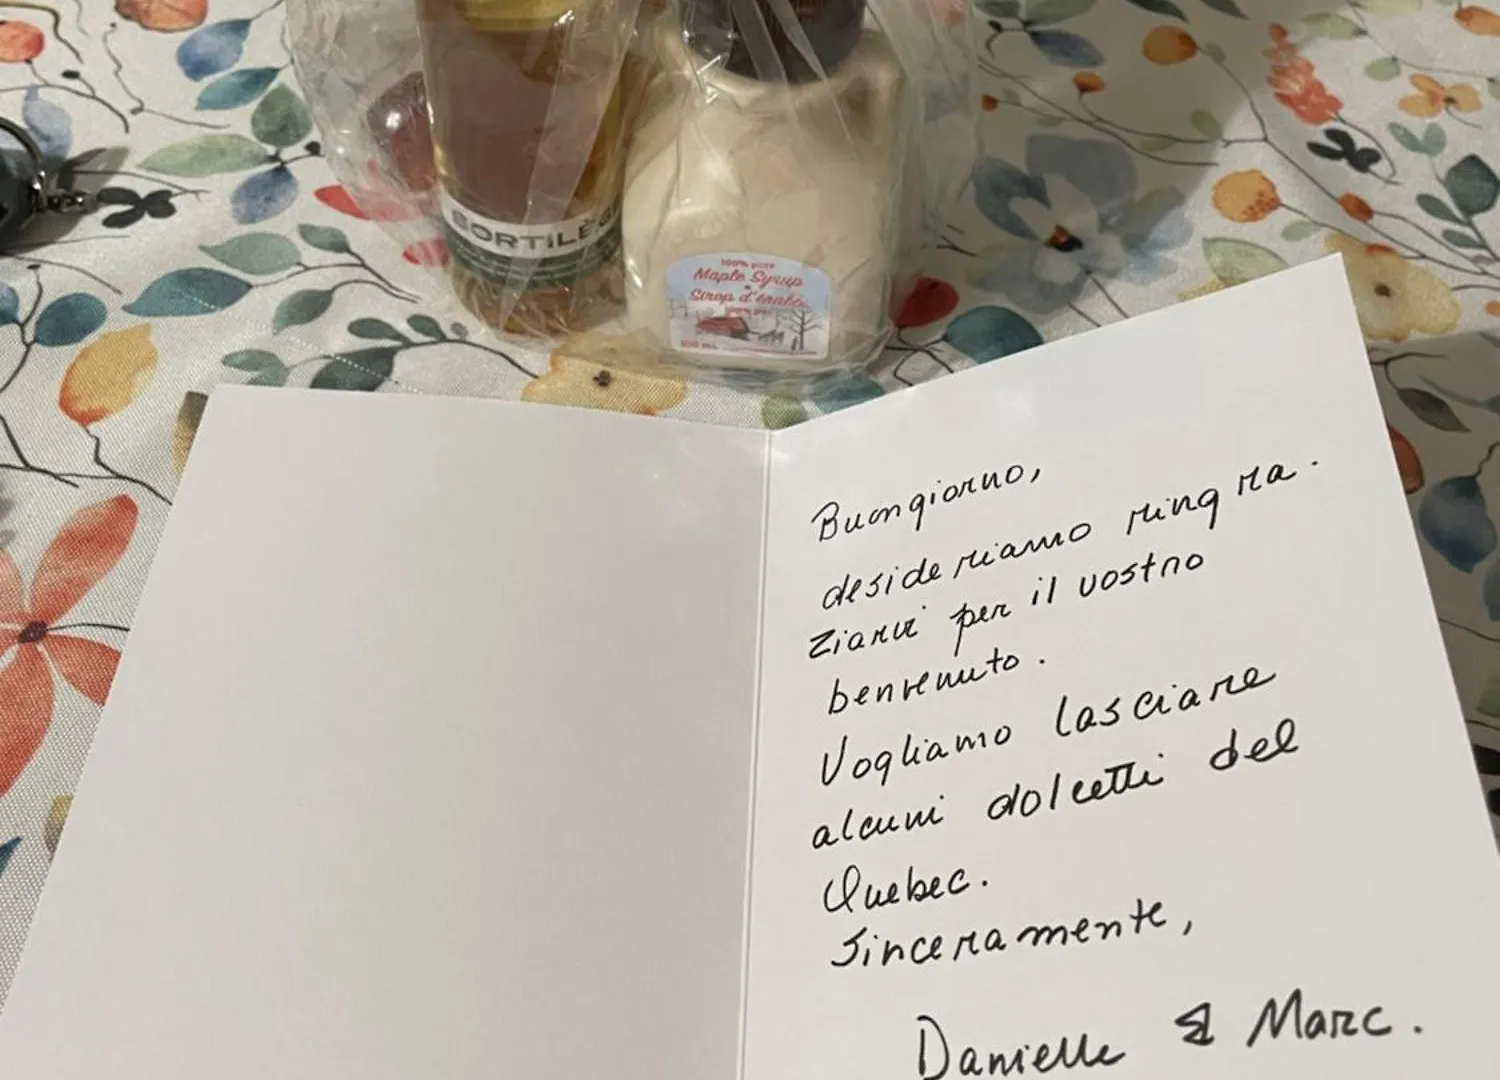 SORTILÈG
100% pure
Maple Syrup
Sirop d'érable
100% pur
100 mL
Buongiorno,
desideriamo ringra-
ziarvi per il vostro
benvenuto.
Vogliamo lasciare
alcuni dolcetti del
Quebec.
Sinceramente,
Danielle & Marc.